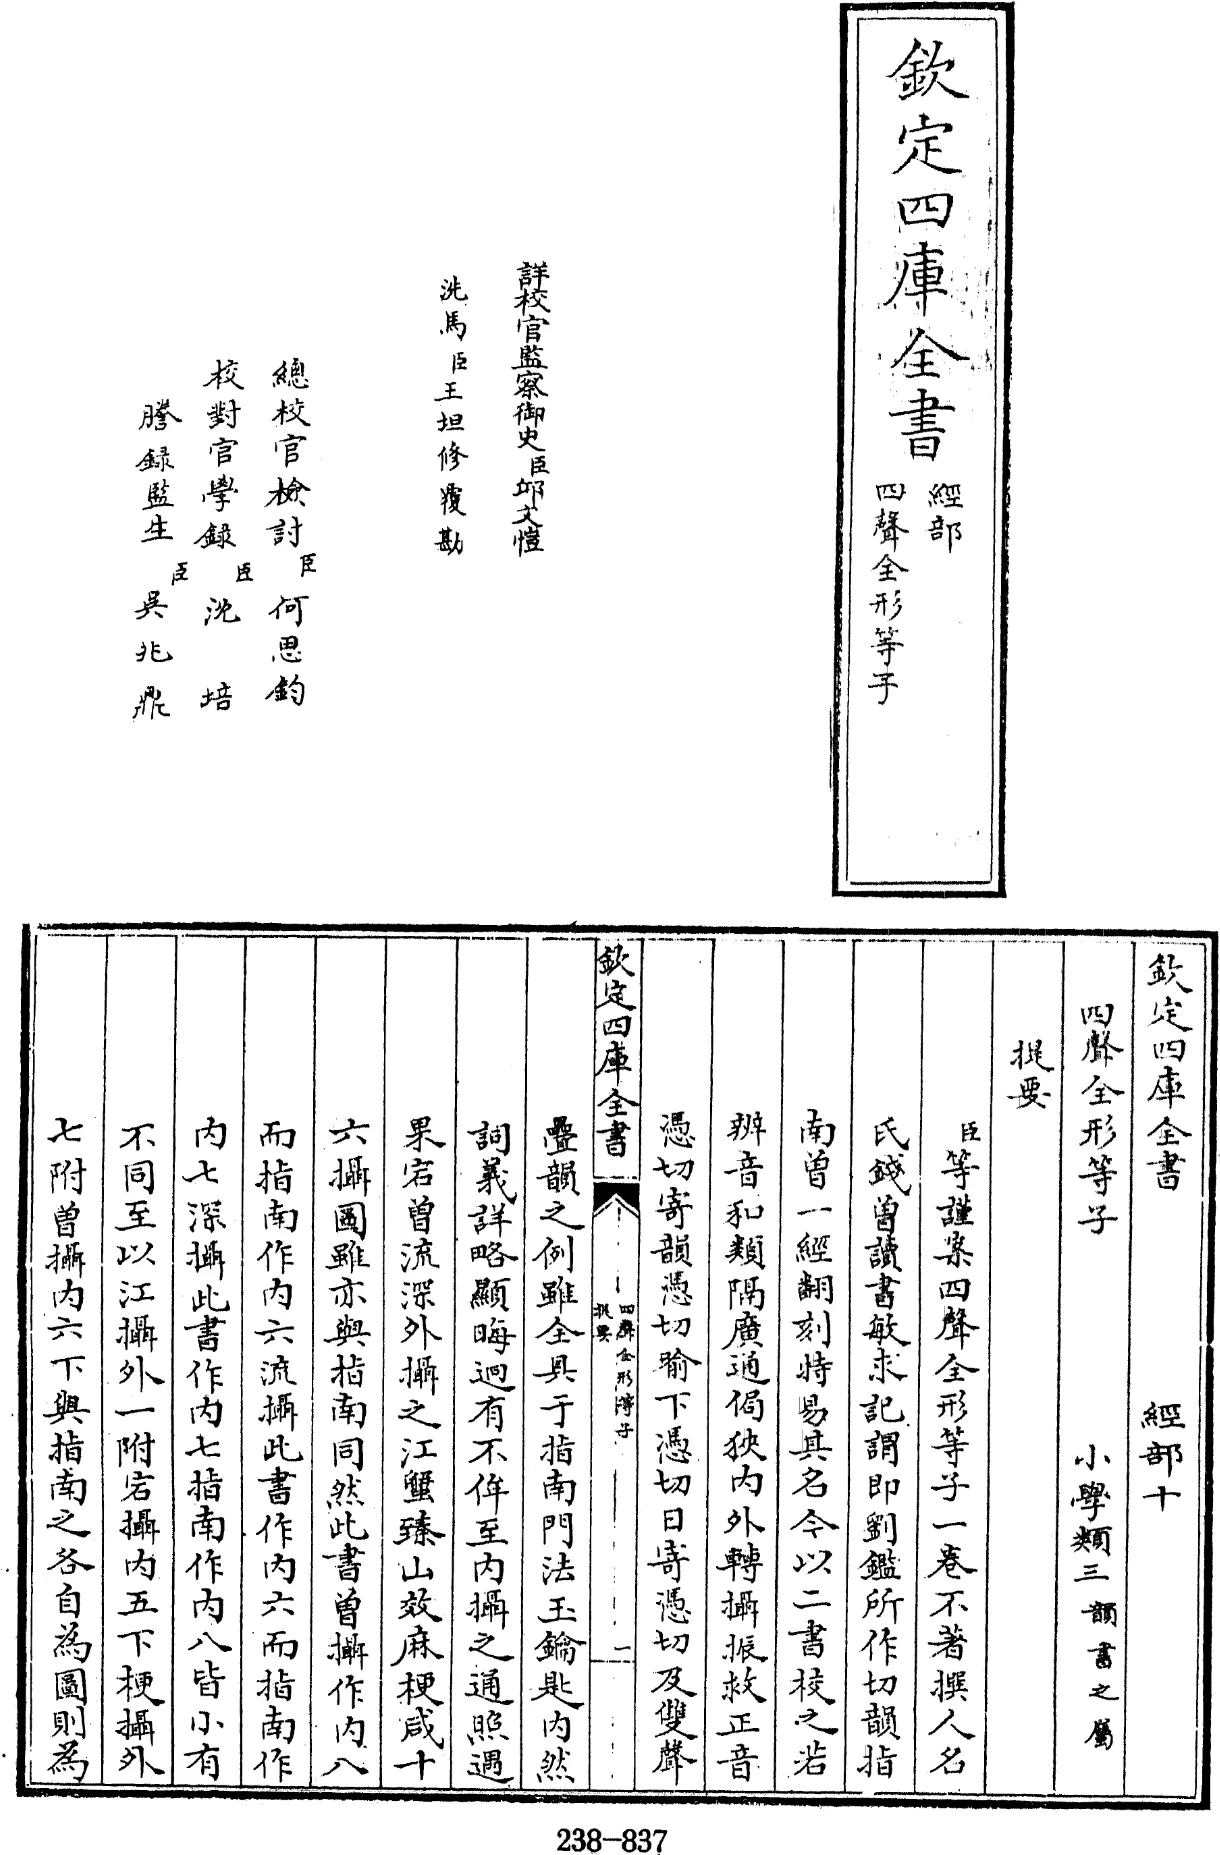 欽定四庫全書
經部
四聲全形等子
詳校官監察御史臣邱文愷
洗馬臣王坦修覆勘
總校官檢討臣何思鈞
校對官學錄臣沈培
謄錄監生臣吳兆鼎
欽定四庫全書 經部十
四聲全形等子 小學類三韻書之屬
提要
臣等謹案四聲全形等子一卷不著撰人名
氏錢曽讀書敏求記謂即劉鑑所作切韻指
南曽一經翻刻特易其名今以二書校之若
辨音和類隔廣通侷狹内外轉攝振救正音
憑切寄韻憑切喻下憑切日寄憑切及雙聲
欽定四庫全書
四聲全形等子
提要
一
疊韻之例雖全具于指南門法玉鑰匙内然
詞義詳略顯晦迥有不侔至内攝之通照遇
果宕曽流深外攝之江蟹臻山效麻梗咸十
六攝圖雖亦與指南同然此書曽攝作内八
而指南作内六流攝此書作内六而指南作
内七深攝此書作内七指南作内八皆小有
不同至以江攝外一附宕攝内五下梗攝外
七附曽攝内六下與指南之各自為圖則為
238-837